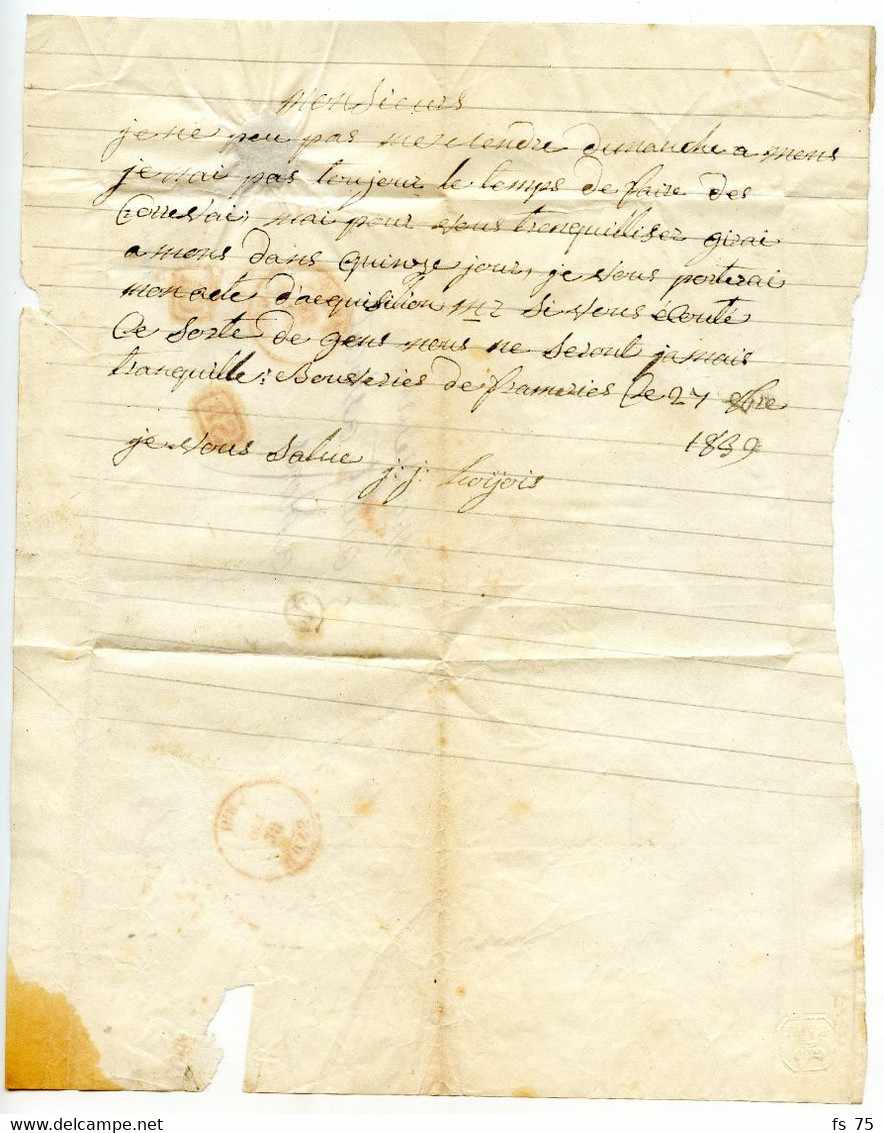 monsieurs
je ne peu pas me rendre dimanche a mons
je nai pas toujour le temps de faire des
mai pour vous tranquilliser girai
a mons dans quinze jour, je vous porterai
mon acte d'acquisition mr si vous écouté
Ce sorte de gens nous ne seront jamais
tranquille: de frameries Ce 27 bre
1839
je vous salue
j: j:
fs 75